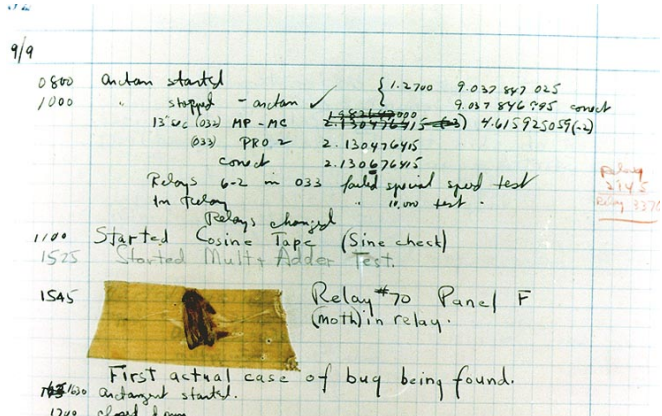 9/9
0800 antan started { 1.2700 9.037 847 025
1000 " stopped - antan ✓ 9.037 846 995 conect
13"uc (032) MP - MC 1.982647000 2.130476415 (-3) 4.615925059(-2)
(033) PRO 2 2.130476415
conect 2.130676415
Relays 6-2 in 033 failed special speed test
In Relay " 10.000 test.
Relay
2145
Relay 3370
Relays changed
1100 Started Cosine Tape (Sine check)
1525 Started Mult + Adder Test.
1545 Relay #70 Panel F
(moth) in relay.
First actual case of bug being found.
1630 antangent started.
1700 closed down.